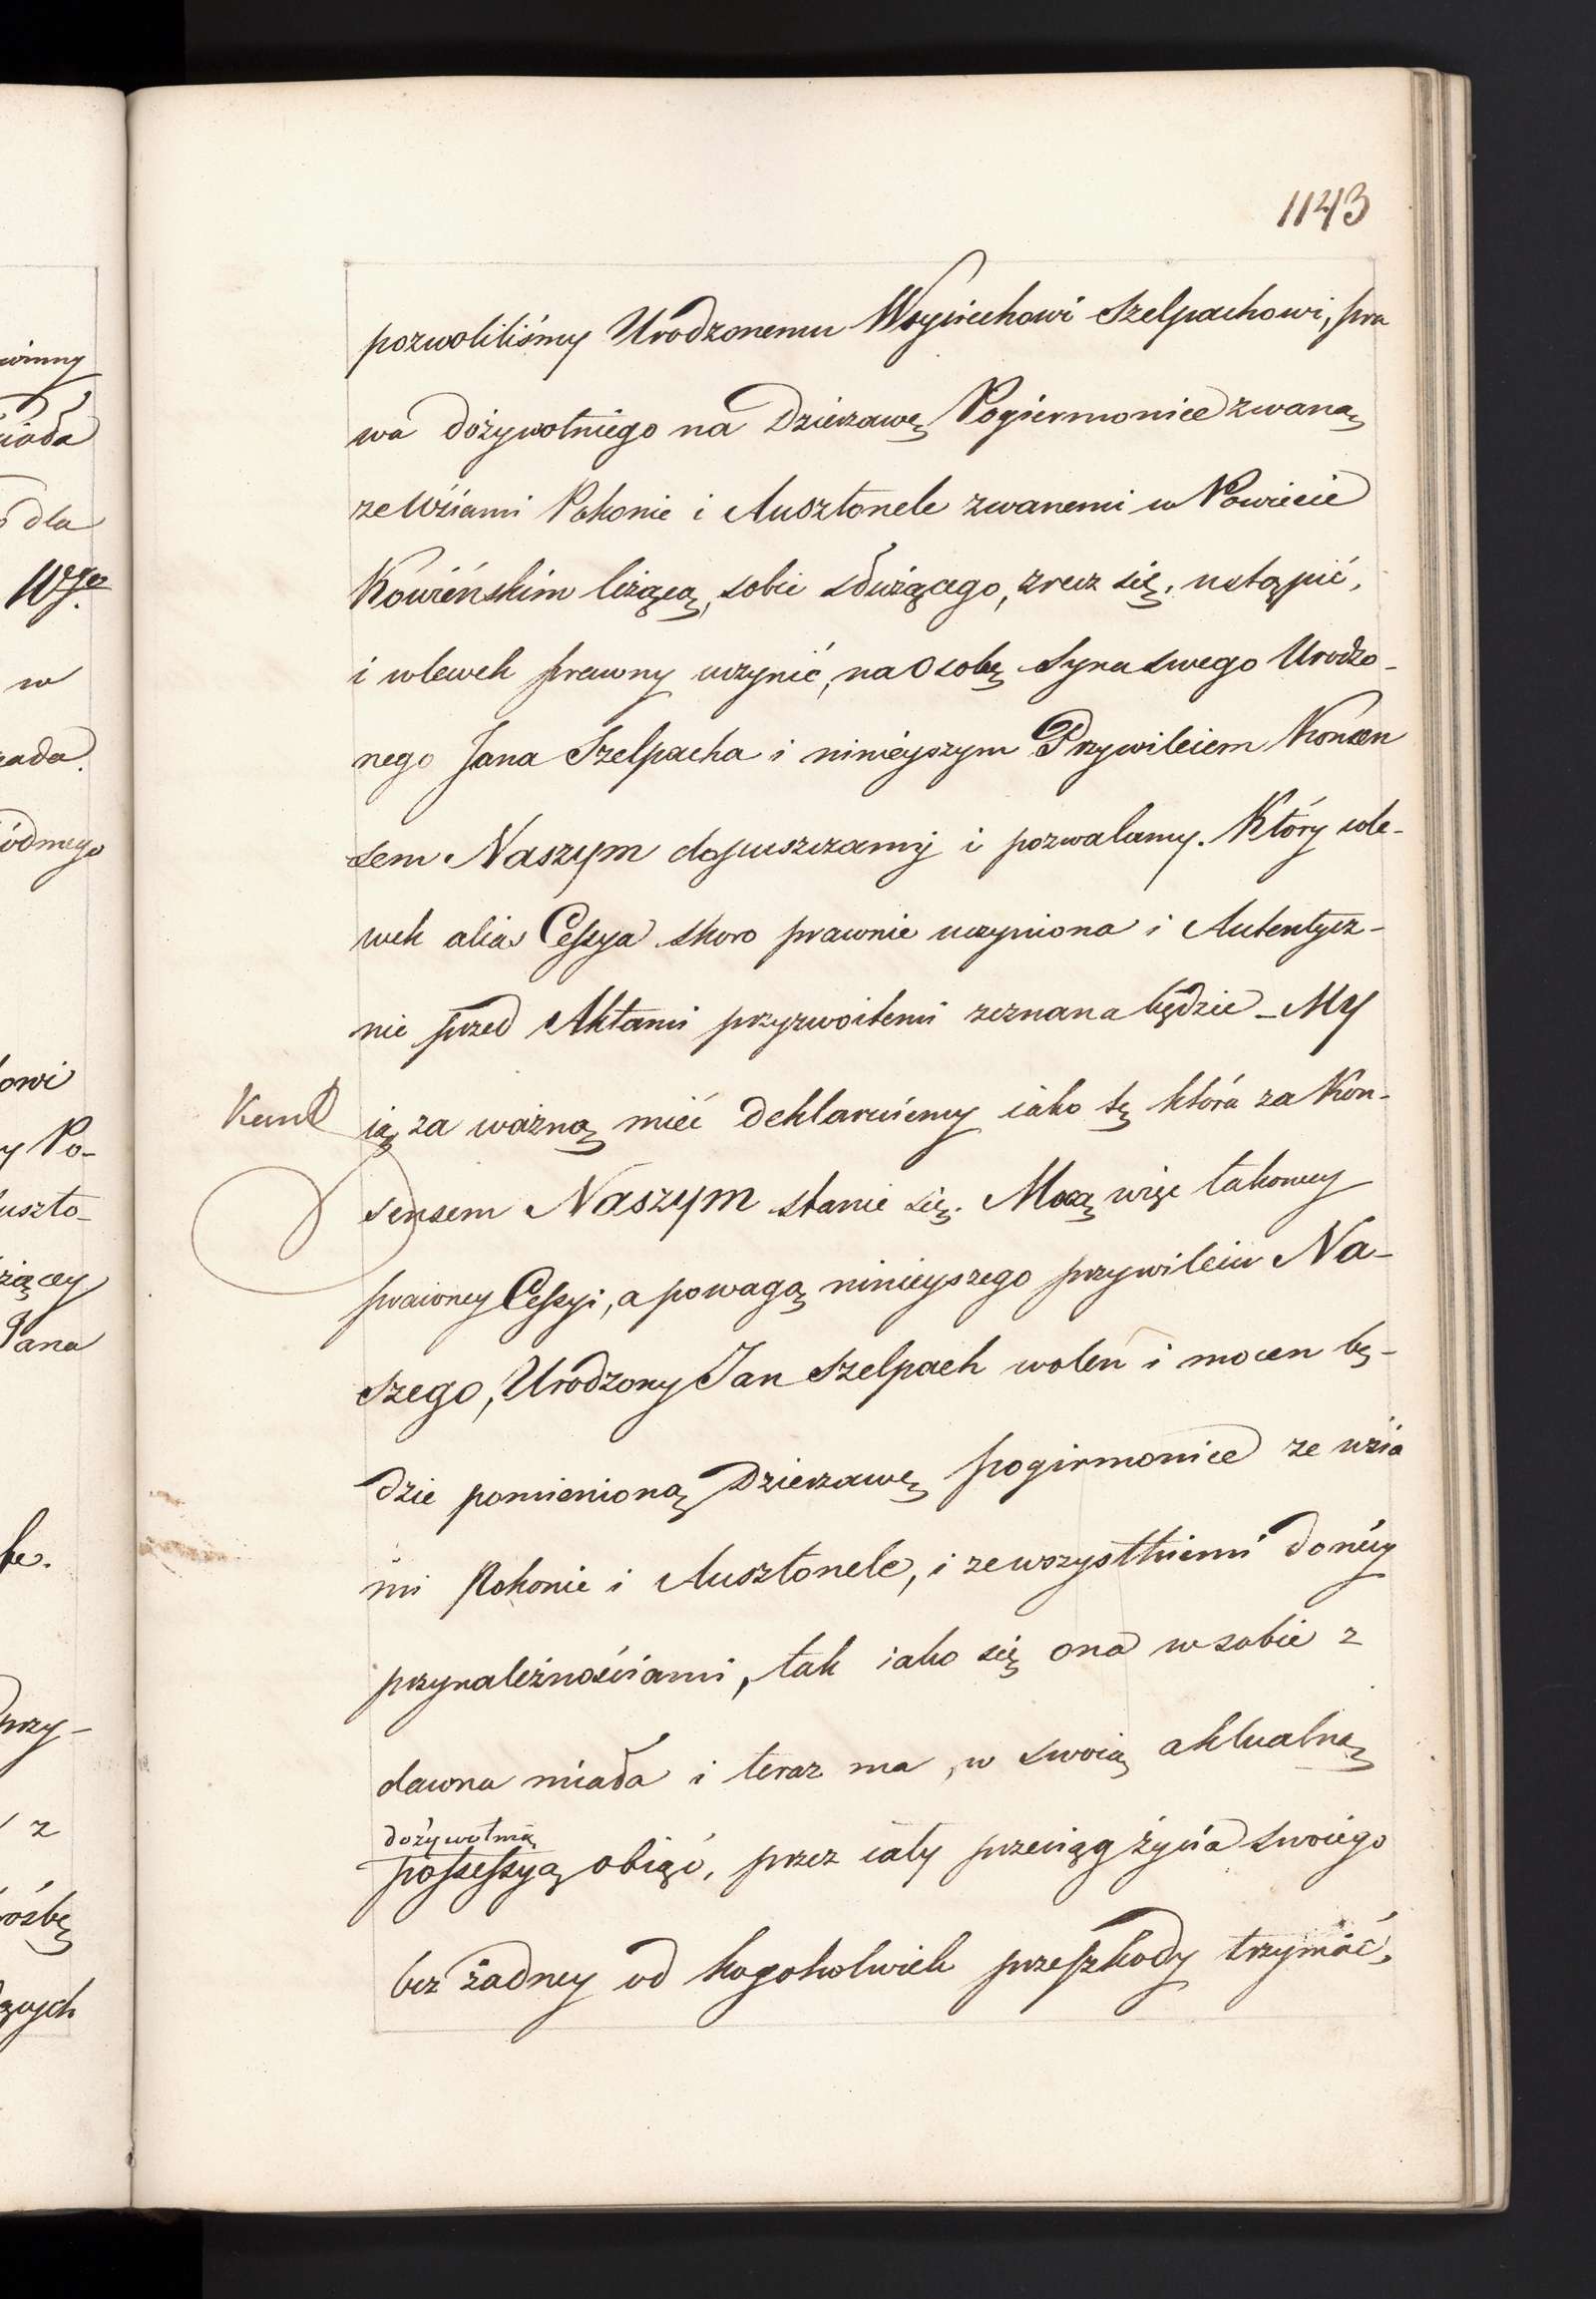 1143
pozwoliliśmy Urodzonemu Woyciechowi Szelpachowi, pra
wa dożywotniego na Dzierzawę Pogiermonice zwaną
ze Wsiami Pokonie i Ausztonele zwanemi w Powiecie
Kowieńskim leżącą, sobie służącego, zrzec się, ustąpić,
i wlewek prawny uczynić, na Osobę Syna swego Urodzo-
nego Jana Szelpacha i ninieyszym Przywileiem Konsen
sem Naszym dopuszczamy i pozwalamy. Który wle-
wek alias Cessya skoro prawnie uczyniona i Autentycz-
nie przed Aktami przyzwoitemi zeznana będzie - MY
ią za ważną mieć deklaruiemy iako tę która za Kon-
sensem Naszym stanie się. Mocą więc takowey
prawney Cessyi, a powagą ninieyszego przywileiu Na-
szego, Urodzony Jan Szelpach wolen i mocen bę-
dzie pomienioną Dzierzawę pogirmonice ze wsia
mi Pokonie i Ausztonele, i ze wszystkiemi do niey
przynależnościami, tak iako się ona w sobie z
dawna miała i teraz ma, w swoią aktualną
dożywotnią
possessyą obiąć, przez cały przeciąg życia swoiego
bez żadney od kogokolwiek przeszkody trzymać,
winny
dla
w
owi
y Po-
uszto-
żącey
Pana
z